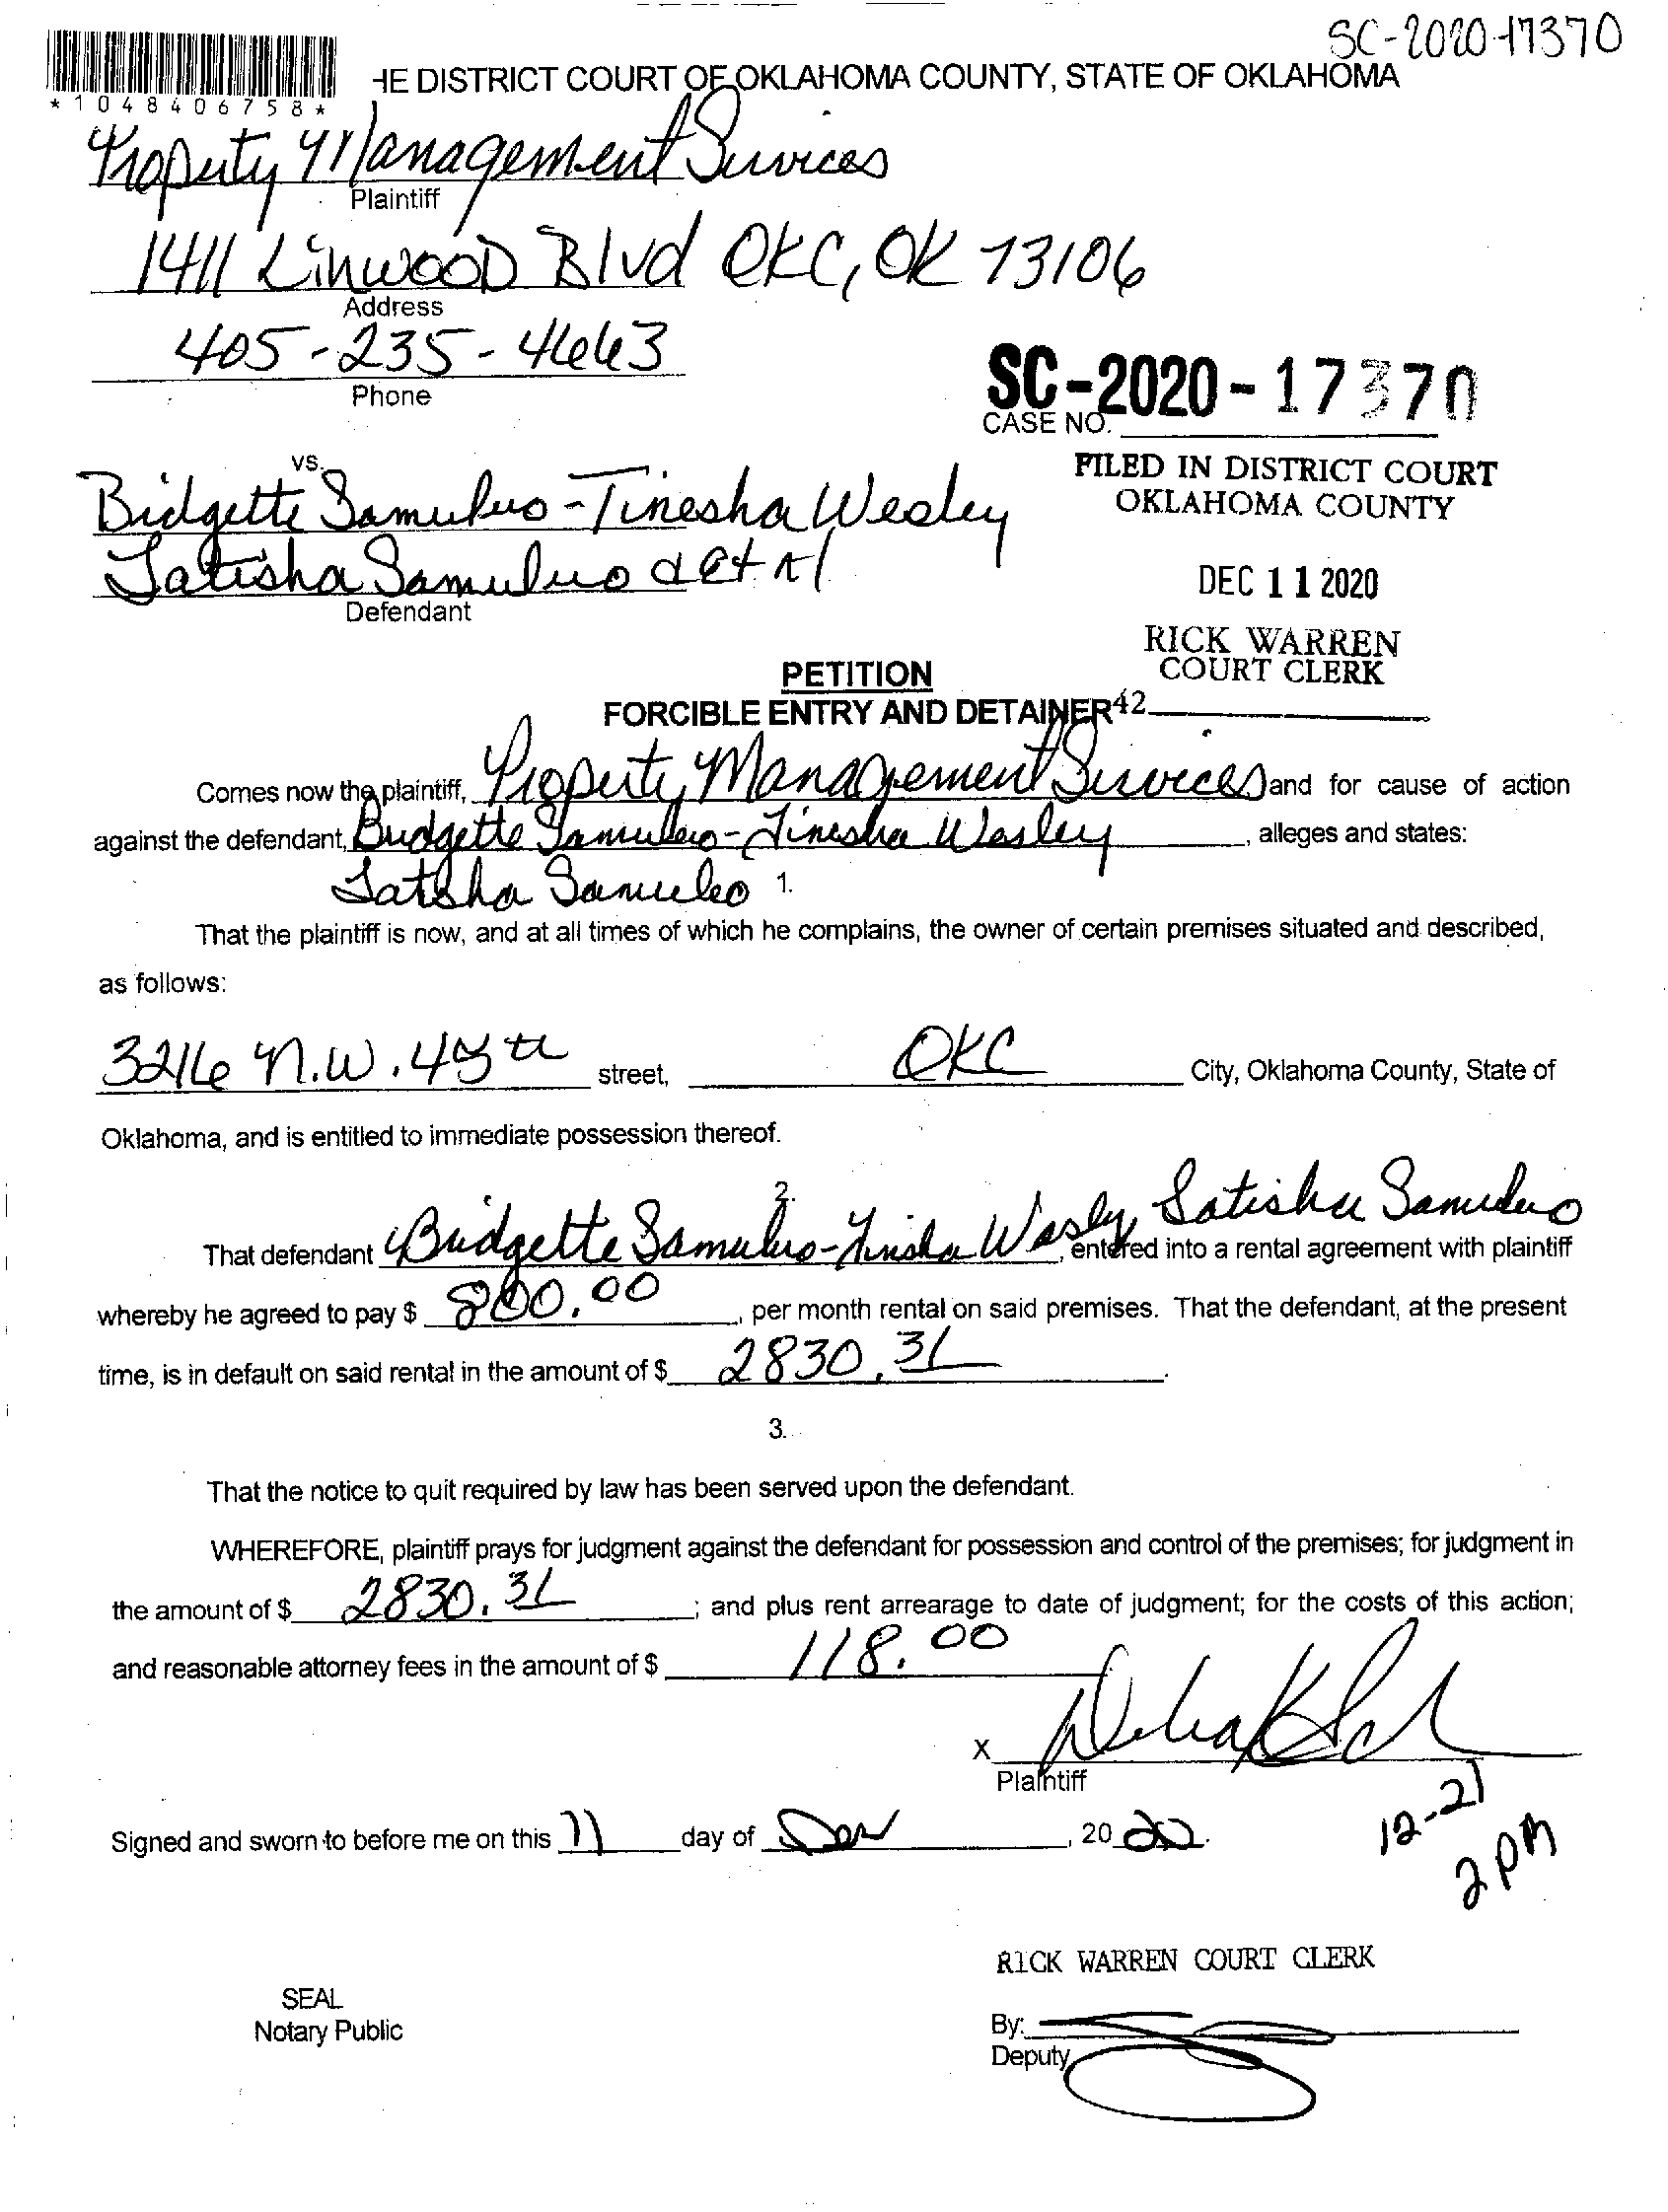 SC-2020-17370
HE DISTRICT COURT OF OKLAHOMA COUNTY, STATE OF OKLAHOMA
*1048406758*
Property Management Services
Plaintiff
1411 Linwood Blvd OKC, OK 73106
Address
405-235-4663
Phone
SC-2020-17370
CASE NO.
vs.
FILED IN DISTRICT COURT
OKLAHOMA COUNTY
Bidgette Samuleo-Tinesha Wesley
Latisha Samuleo
Defendant
DEC 11 2020
RICK WARREN
COURT CLERK
PETITION
FORCIBLE ENTRY AND DETAINER 42
Comes now the plaintiff, Property Management Services and for cause of action
against the defendant, Bridgette Samuleo-Tinesha Wesley, alleges and states:
Latisha Samuleo
1.
That the plaintiff is now, and at all times of which he complains, the owner of certain premises situated and described,
as follows:
3216 N.W. 45th street, OKC City, Oklahoma County, State of
Oklahoma, and is entitled to immediate possession thereof.
2.
That defendant Bridgette Samuleo-Tinisha Wesley, Latisha Samuleo, entered into a rental agreement with plaintiff
whereby he agreed to pay $ 800.00, per month rental on said premises. That the defendant, at the present
time, is in default on said rental in the amount of $ 2830.31.
3.
That the notice to quit required by law has been served upon the defendant.
WHEREFORE, plaintiff prays for judgment against the defendant for possession and control of the premises; for judgment in
the amount of $ 2830.31; and plus rent arrearage to date of judgment; for the costs of this action;
and reasonable attorney fees in the amount of $ 118.00
X
Plaintiff
12-21
2pm
Signed and sworn to before me on this 11 day of Dec, 2020.
RICK WARREN COURT CLERK
SEAL
Notary Public
By:
Deputy